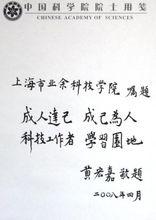 中国科学院院士用笺
CHINESE ACADEMY OF SCIENCES
上海市业余科技学院 嘱题
成人達己 成己為人
科技工作者 學習園地
黄宏嘉敬題
二〇〇八年四月